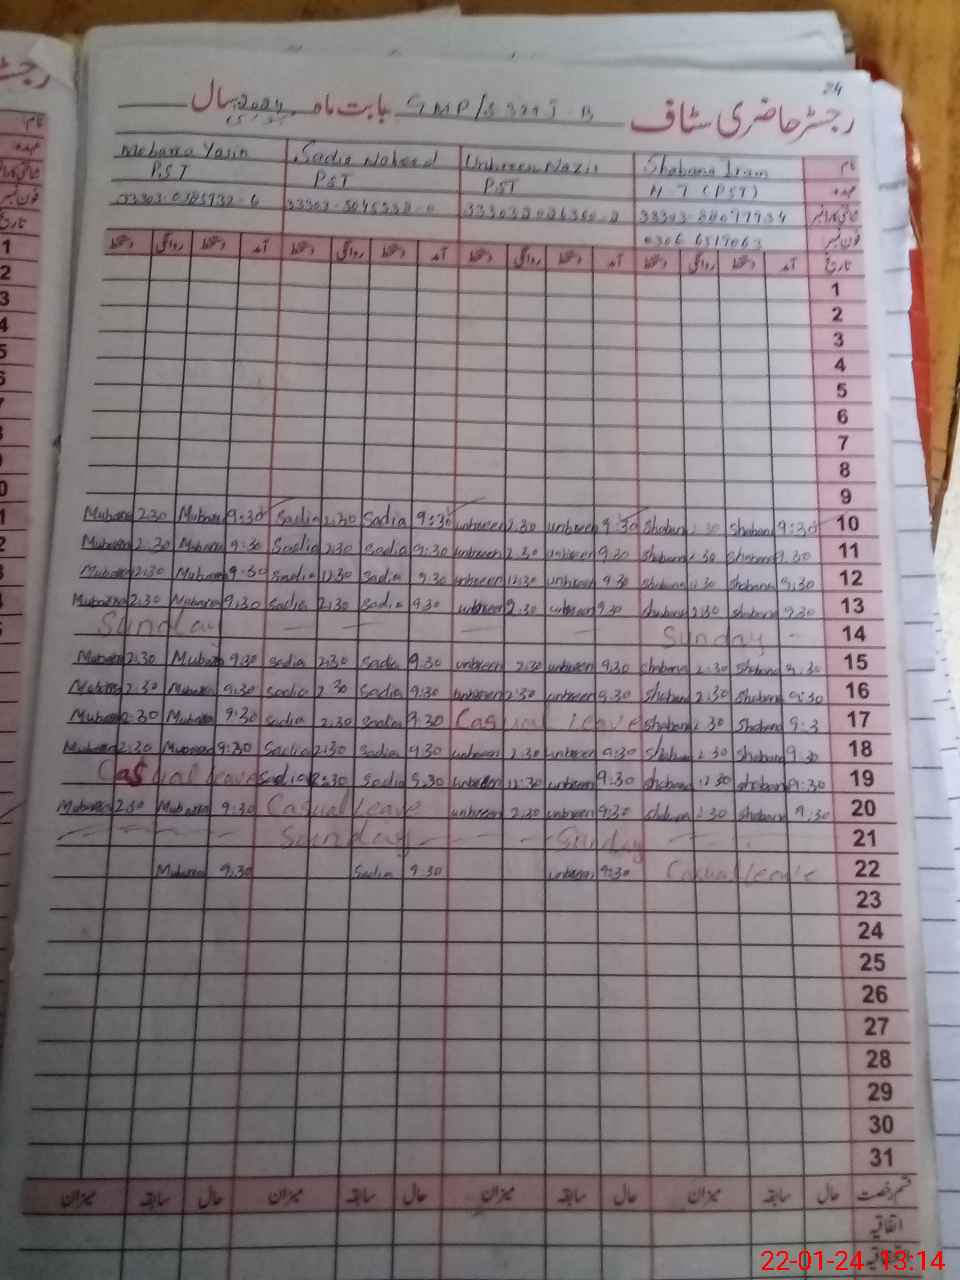 24
رجسٹر حاضری سٹاف بابت ماہ سال 2024
نام Shabana Iram Unbreen Nazir Sadia Naheed Mobarra Yasin
عہدہ H T (PST) PST PST PST
فون نمبر 0306 6519063
تاریخ آمد دستخط روانگی دستخط آمد دستخط روانگی دستخط آمد دستخط روانگی دستخط آمد دستخط روانگی دستخط
1
2
3
4
5
6
7
8
9
Mubarra 2:30 Mubarra 9:30 Sadia 2:30 Sadia 9:30 unbreen 2:30 unbreen 9:30 Shabana 2:30 Shabana 9:30 10
Mubarra 2:30 Mubarra 9:30 Sadia 2:30 Sadia 9:30 unbreen 2:30 unbreen 9:30 Shabana 2:30 Shabana 9:30 11
Mubarra 12:30 Mubarra 9:30 Sadia 12:30 Sadia 9:30 unbreen 12:30 unbreen 9:30 Shabana 12:30 Shabana 9:30 12
Mubarra 2:30 Mubarra 9:30 Sadia 2:30 Sadia 9:30 unbreen 2:30 unbreen 9:30 Shabana 2:30 Shabana 9:30 13
Sunday Sunday 14
Mubarra 2:30 Mubarra 9:30 Sadia 2:30 Sadia 9:30 unbreen 2:30 unbreen 9:30 Shabana 2:30 Shabana 9:30 15
Mubarra 2:30 Mubarra 9:30 Sadia 2:30 Sadia 9:30 unbreen 2:30 unbreen 9:30 Shabana 2:30 Shabana 9:30 16
Mubarra 2:30 Mubarra 9:30 Sadia 2:30 Sadia 9:30 Casual leave Shabana 2:30 Shabana 9:3 17
Mubarra 2:30 Mubarra 9:30 Sadia 2:30 Sadia 9:30 unbreen 2:30 unbreen 9:30 Shabana 2:30 Shabana 9:30 18
Casual leave Sadia 12:30 Sadia 9:30 unbreen 12:30 unbreen 9:30 Shabana 12:30 Shabana 9:30 19
Mubarra 2:30 Mubarra 9:30 Casual leave unbreen 2:30 unbreen 9:30 Shabana 2:30 Shabana 9:30 20
Sunday Sunday 21
Mubarra 9:30 Sadia 9:30 unbreen 9:30 Casual leave 22
23
24
25
26
27
28
29
30
31
قسم رخصت حال سابقہ میزان حال سابقہ میزان حال سابقہ میزان حال سابقہ میزان
اتفاقیہ
22-01-24 13:14